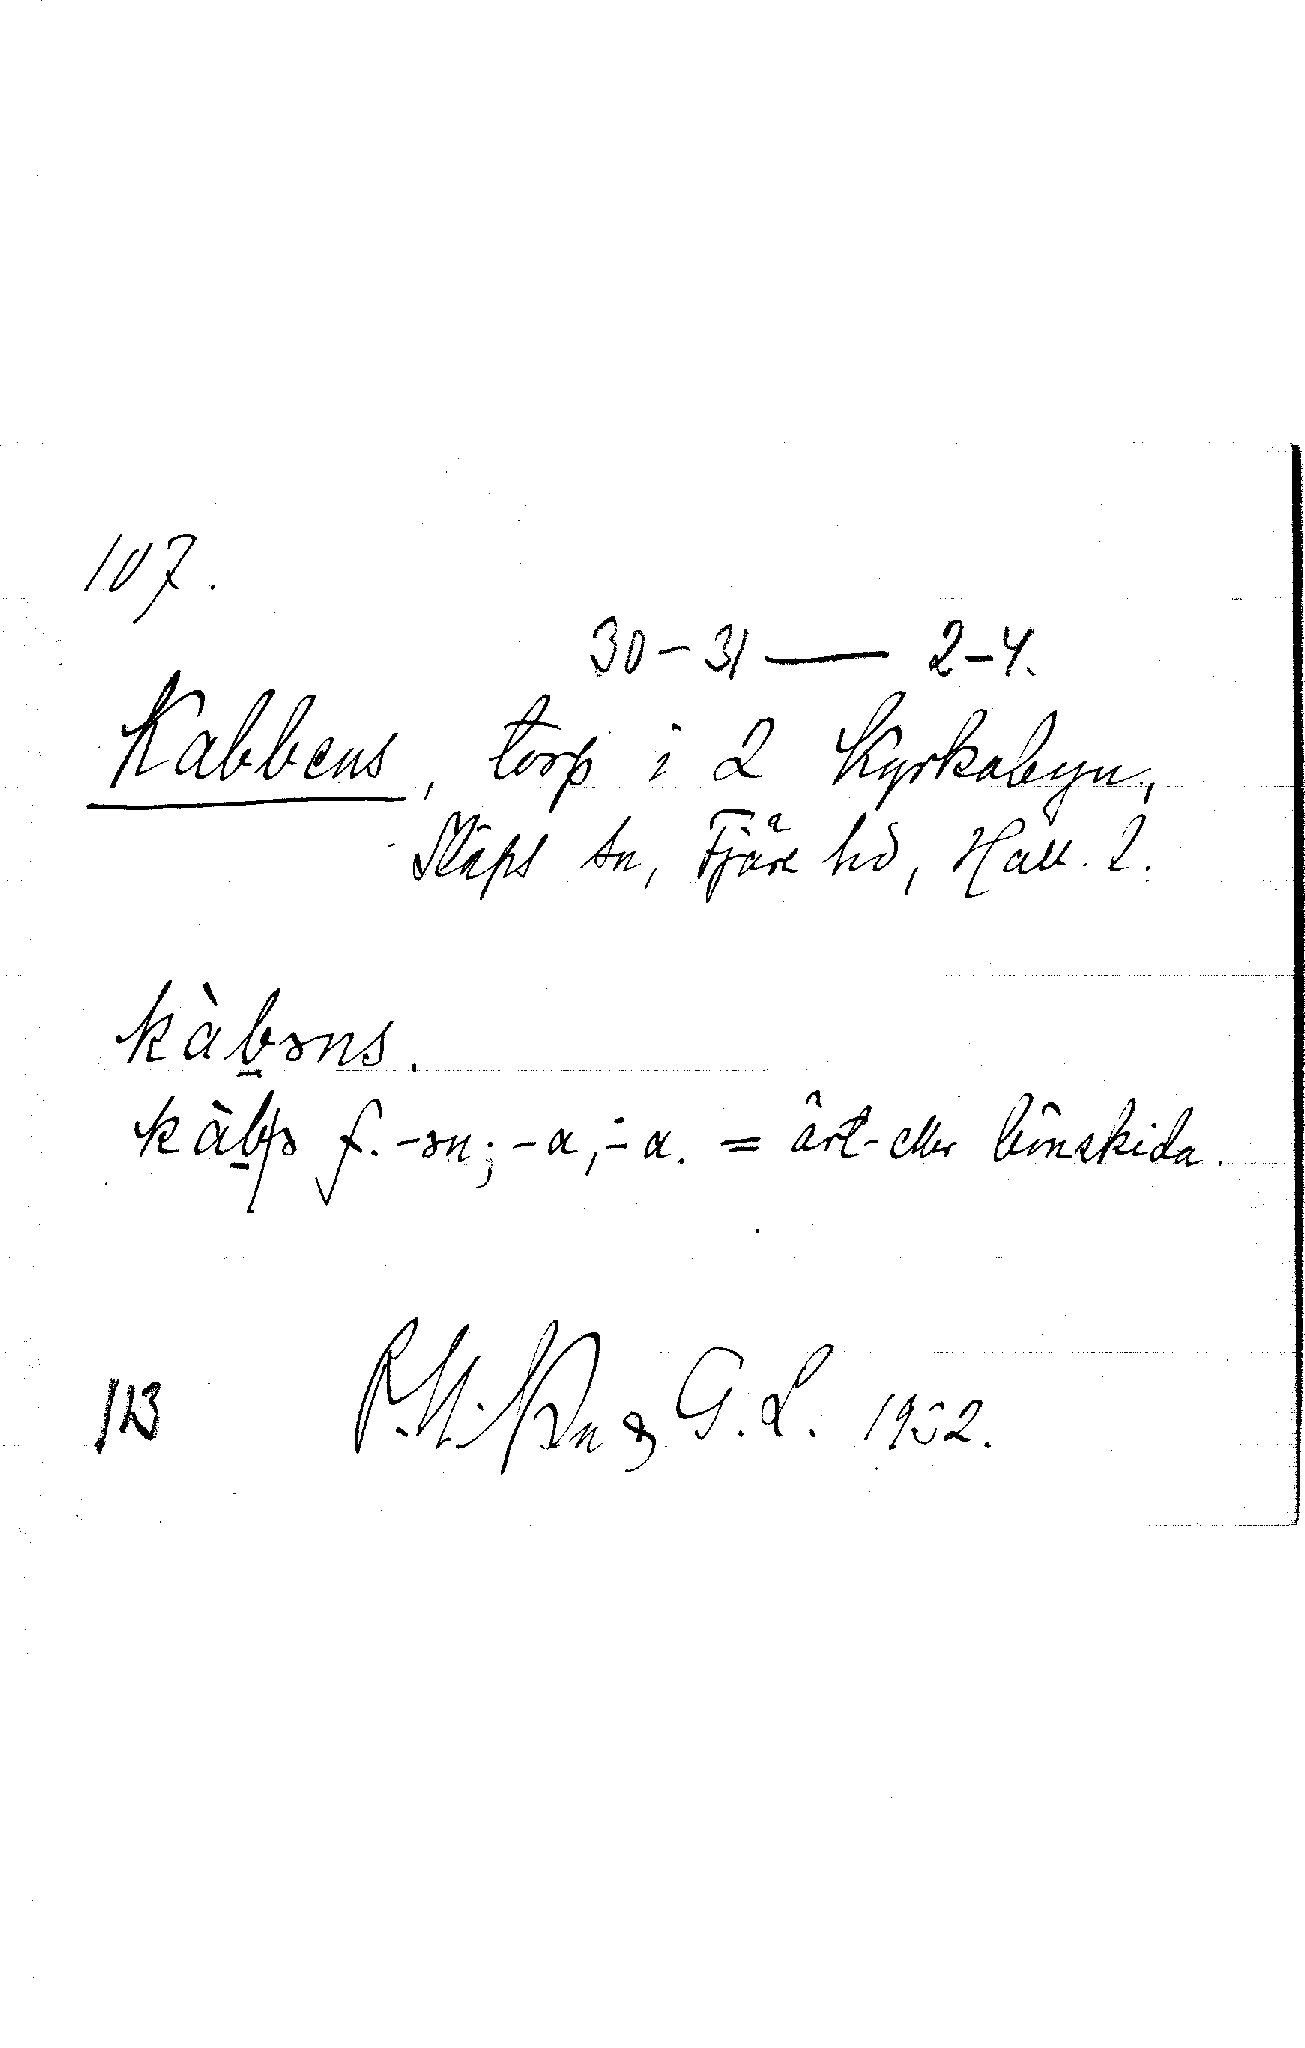 107.
30-31 — 2-4.
Kabbens, torp i 2 Kyrkobyn,
Släps sn, Fjäre hd, Hall. l.
kàb̲əns.
f. -ən; -a, -a. = ärt- eller bönskida.
113 G. L. 1932.